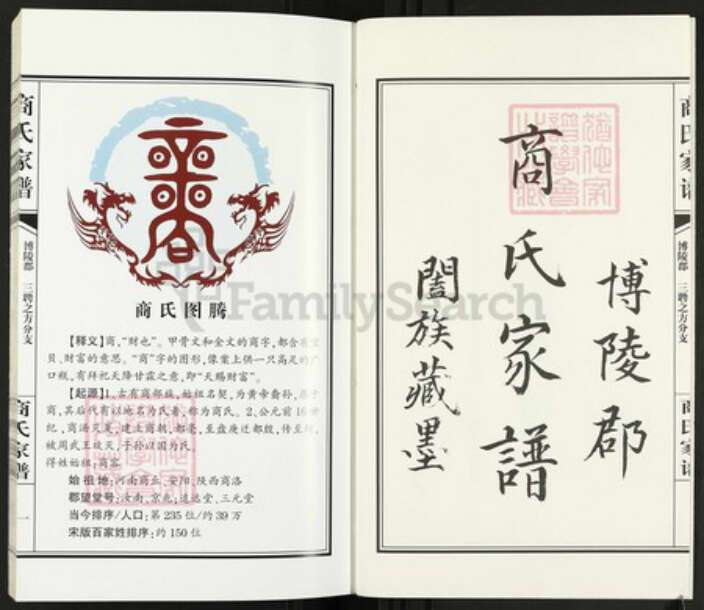 商氏家谱
博陵郡 三聘之方分支
商氏家谱
一
商氏图腾
【释义】商,“财也”。甲骨文和金文的商字,都含有宝
贝、财富的意思。“商”字的图形,像案上供一只高足的广
口瓶,有拜祀天降甘霖之意,即“天赐财富”。
【起源】1、古有商部族,始祖名契,为黄帝裔孙,居于
商,其后代有以地名为氏者,称为商氏。2、公元前16世
纪,商汤灭夏,建立商朝,都亳,至盘庚迁都殷,传至纣,
被周武王姬灭,子孙以国为氏。
得姓始祖:商容
始祖地:河南商丘、安阳、陕西商洛
郡望堂号:汝南、京兆;道远堂、三元堂
当今排序/人口:第235位/约39万
宋版百家姓排序:约150位
FamilySearch
博陵郡
商氏家譜
闔族藏墨
商氏家谱
博陵郡 三聘之方分支
商氏家谱